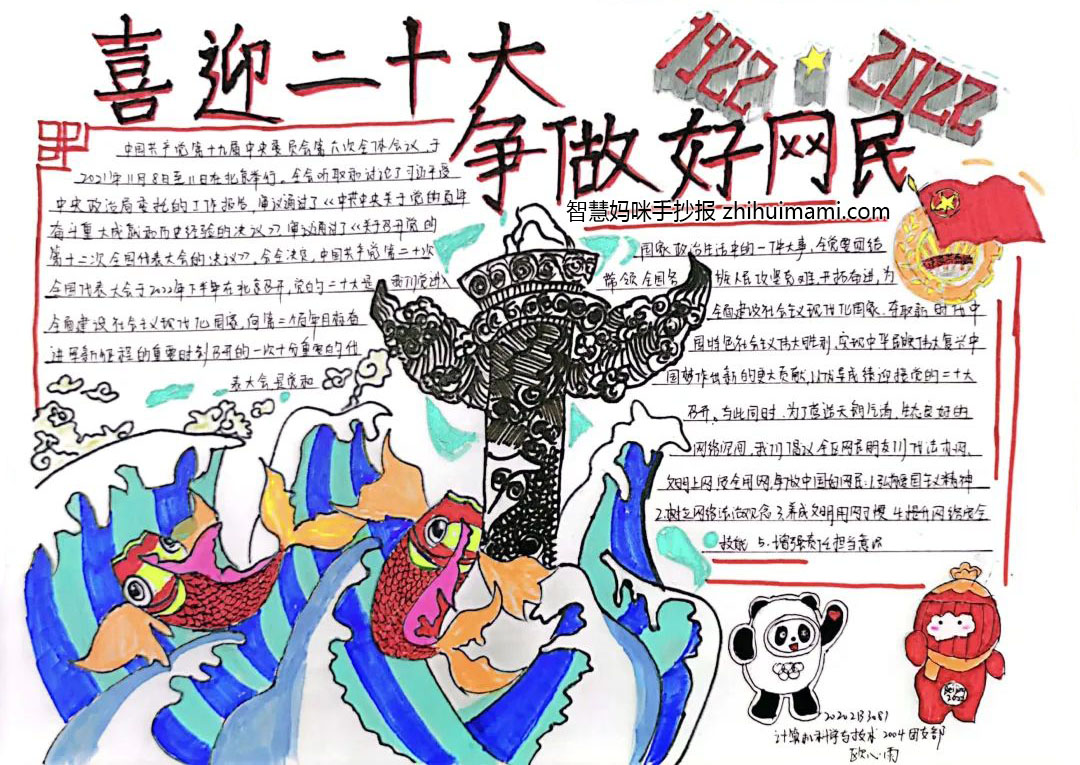 喜迎二十大
1922 2022
争做好网民
智慧妈咪手抄报 zhihuimami.com
中国共产党第十九届中央委员会第六次全体会议,于
2021年11月8日至11日在北京举行。全会听取和讨论了习近平受
中央政治局委托的工作报告,审议通过了《中共中央关于党的百年
奋斗重大成就和历史经验的决议》,审议通过了《关于召开党的
第二十次全国代表大会的决议》,全会决定,中国共产党第二十次
全国代表大会于2022年下半年在北京召开,党的二十大是 我们党进入
全面建设社会主义现代化国家,向第二个百年目标奋
进军新征程的重要时刻召开的一次十分重要的代
表大会是党和
国家政治生活中的一件大事,全党要团结
带领全国各 族人民攻坚克难,开拓奋进,为
全面建设社会主义现代化国家,夺取新时代中
国特色社会主义伟大胜利,实现中华民族伟大复兴中
国梦作出新的更大贡献,以优异成绩迎接党的二十大
召开。与此同时,为了营造天朗气清,生态良好的
网络空间,我们倡议全区网民朋友们 依法办网、
文明上网 安全用网,争做中国好网民:1.弘扬爱国主义精神
2.树立网络法治观念 3.养成文明用网习惯 4.提升网络安全
技能 5.增强责任担当意识
Beijing
2022
2020213081
计算机科学与技术 2004团支部
欧心雨